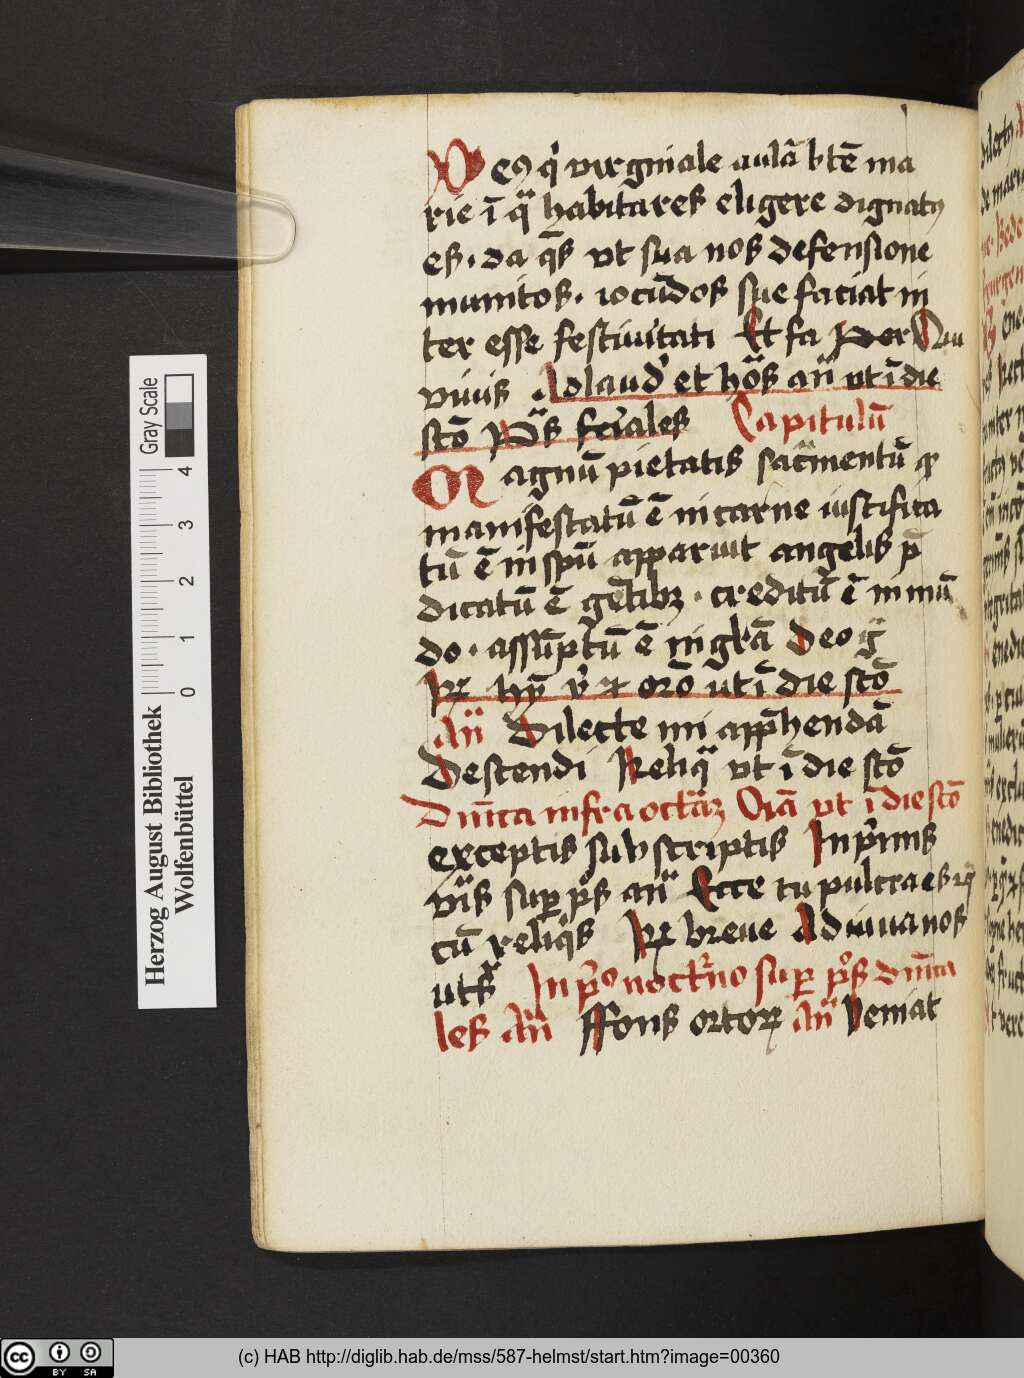 Deꝯ qͥ virginiale aulā btē ma
rie ī qͣ habitares eligere dignatꝯ
es · da qs̄ vt sua nos defensione
munitos · iocūdos sue faciat in
ter esse festiuitati Et fa per
viuis Ad laud' et hoͣs an̄ vt ī die
scō pͣs feriales Capitulū
Magnū pietatis sacͣmentū qͥ
manifestatū ē in carne iustifica
tū ē in spū apparuit angelis p̄
dicatū ē gētibꝫ · creditū ē in mū
do · assūptū ē in glͣā Deo gͣ
hȳ v̓ orō ut ī die scō
an̄ Dilecte mi apphendā
Descendi Reliqͣ vt ī die scō
Dn̄ica infra octaͣꝫ Oīa vt ī die scō
exceptis subscriptis In pͥmis
vīs suꝑ ps̄ an̄ Ecce tu pulcra es
cū reliqͥs breue Adiuua nos
uts̄ In pͥo noctͬno super pͦs dn̄ica
les An̄ ffons ortoꝝ an̄ Veniat
Herzog August Bibliothek
Wolfenbüttel
Gray Scale
0 1 2 3 4
cc BY SA
(c) HAB http://diglib.hab.de/mss/587-helmst/start.htm?image=00360